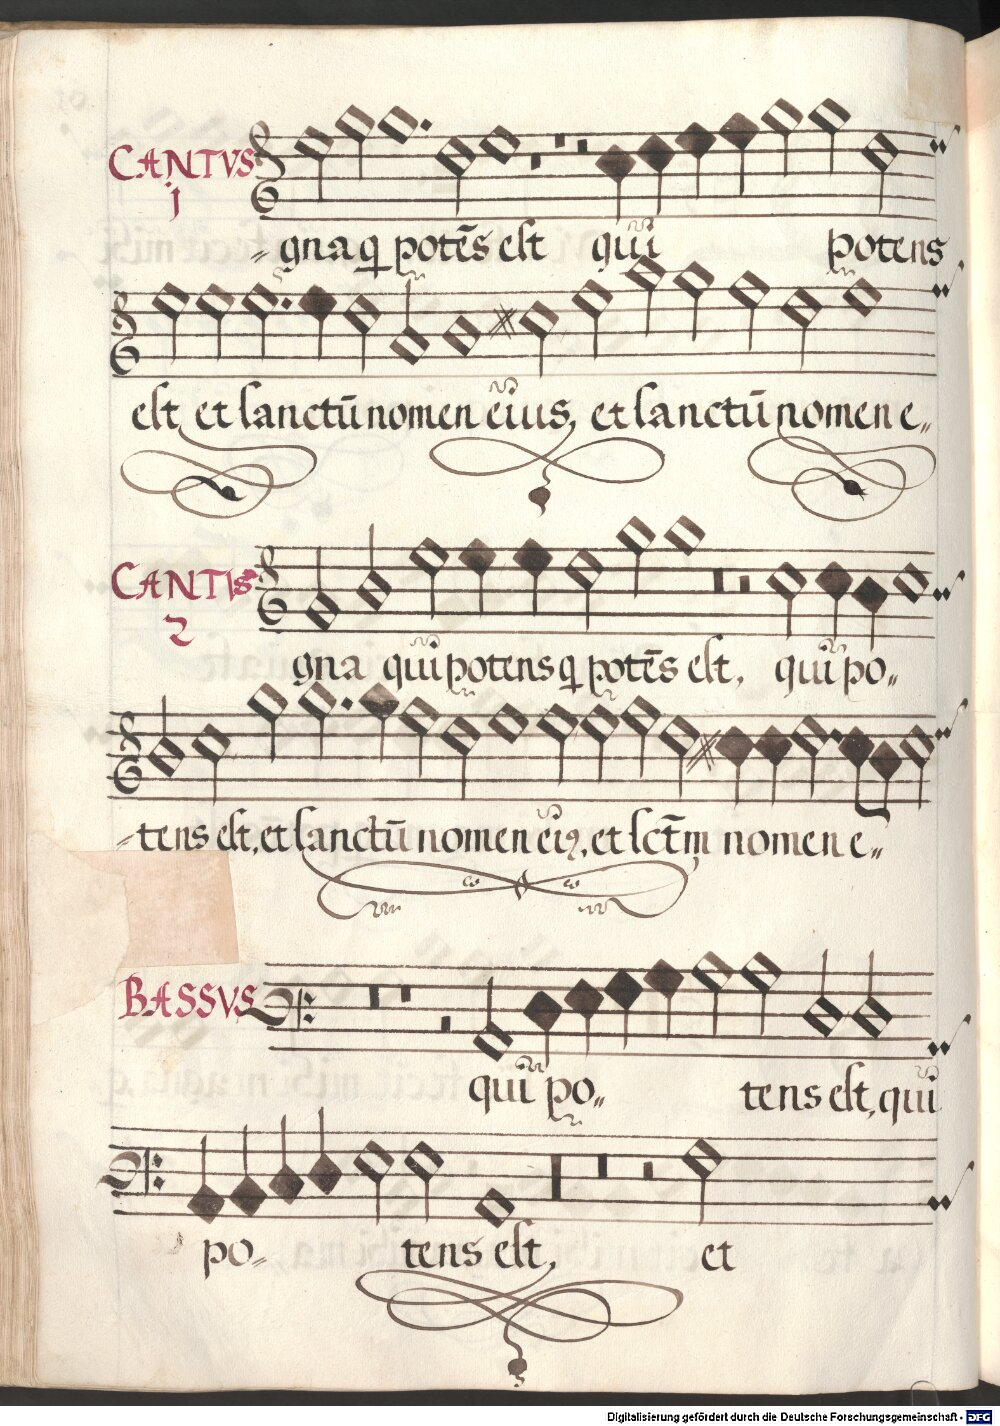 CANTVS
1
gnaq potēs est qui potens
est et sanctū nomen eius, et sanctū nomen e
CANTVS
2
gna qui potens q potēs est, qui po
tens est, et sanctū nomen ei9, et sctm̄ nomen e
BASSVS
qui po tens est, qui
po tens est, et
Digitalisierung gefördert durch die Deutsche Forschungsgemeinschaft - DFG